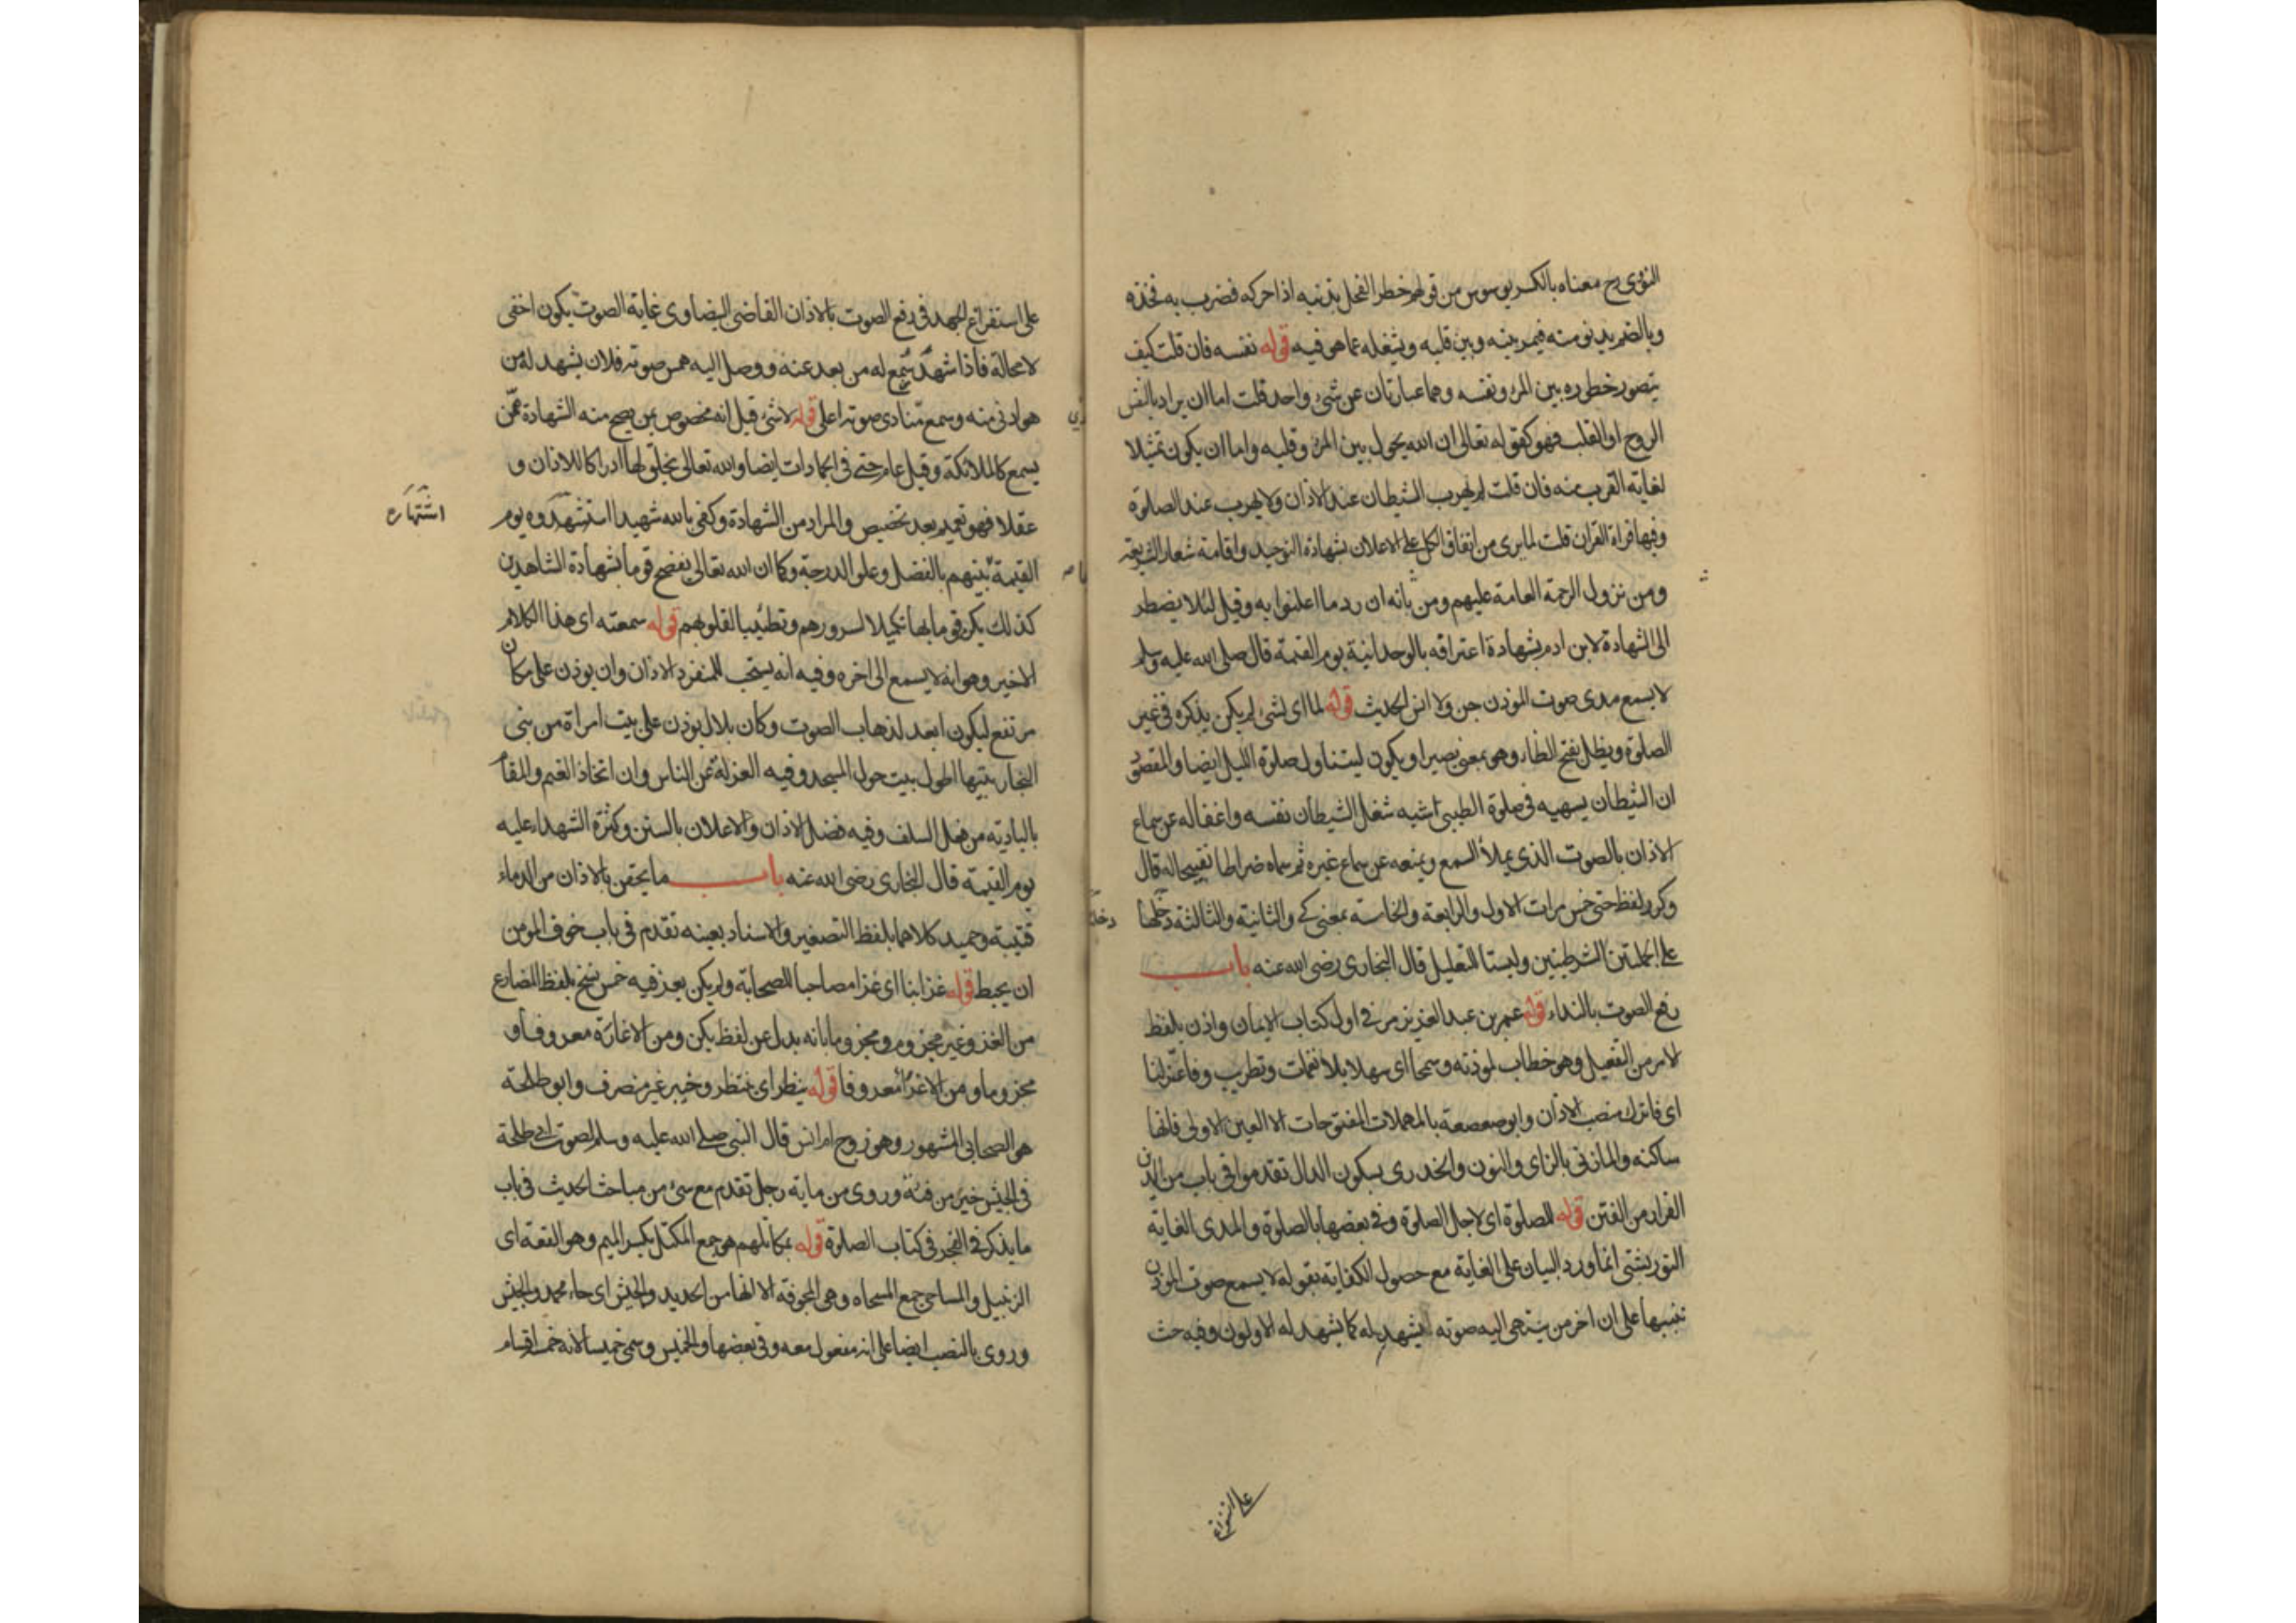 النووي رح معناه بالكسر يوسوس من قولهم خطر الفحل بذنبه اذا حركه فضرب به فخذه
وبالضم يدنو منه فيمر بينه وبين قلبه ويشغله عما هو فيه قوله نفسه فان قلت كيف
يتصور خطوره بين المرء ونفسه وهما عبارتان عن شيء واحد قلت اما ان يراد بالنفس
الروح او القلب فهو كقوله تعالى ان الله يحول بين المرء وقلبه واما ان يكون تمثيلا
لغاية القرب منه فان قلت لم يهرب الشيطان عند الاذان ولا يهرب عند الصلوة
وفيها قراة القران قلت لما يرى من اتفاق الكل على الاعلان بشهادة التوحيد واقامة شعار الشريعة
ومن نزول الرحمة العامة عليهم ومن ياسه ان رد ما اعلنوا به وقيل لئلا يضطر
الى الشهادة لابن ادم بشهادة اعترافه بالوحدانية يوم القيمة قال صلى الله عليه وسلم
لا يسمع مدى صوت المؤذن جن ولا انس الحديث قوله لما اى لشئ لم يكن يذكره في غير
الصلوة ويظل بفتح الظاء وهو بمعنى يصير او يكون ليتناول صلوة الليل ايضا والمقصود
ان الشيطان يسهيه في صلوة الطيبي شبه شغل الشيطان نفسه واغفاله عن سماع
الاذان بالصوت الذي يملأ السمع ويمنعه عن سماع غيره ثم سماه ضراطا تقبيحا له قال
وكرر لفظ حتى خمس مرات الاول والرابعة والخامسة بمعنى كي والثانية والثالثة دخلتا
دخلتا
على الجملتين الشرطيتين وليستا للتعليل قال البخارى رضى الله عنه باب
رفع الصوت بالنداء قوله عمر بن عبد العزيز مر في اول كتاب الايمان واذن بلفظ
الامر من التفعيل وهو خطاب لمؤذنه وسمحا اى سهلا بلا نغمات وتطريب وفاعتزلنا
اى فاترك منصب الاذان وابو صعصعة بالمهملات المفتوحات الا العين الاولى فانها
ساكنه والمازني بالزاى والنون والخدرى بسكون الدال تقدموا في باب من الدين
الفرار من الفتن قوله للصلوة اى لاجل الصلوة وفي بعضها بالصلوة والمدى الغاية
التوربشتي انما ورد البيان على الغاية مع حصول الكفاية بقوله لا يسمع صوت المؤذن
تنبيها على ان اخر من ينتهى اليه صوته يشهد له كما يشهد له الاولون وفيه حث
على استفراغ الجهد في رفع الصوت بالاذان القاضى البيضاوى غاية الصوت يكون اخفى
لا محالة فاذا شهد له من بعد عنه ووصل اليه همس صوته فلان يشهد له من
هو ادنى منه وسمع مبادى صوته اعلى قوله لا شئ قيل انه مخصوص بمن يصح منه الشهادة ممن
يسمع كالملائكة وقيل عام حتى في الجمادات ايضا والله تعالى يخلق لها ادراكا للاذان و
عقلا فهو تعميم بعد تخصيص والمراد من الشهادة وكفى بالله شهيدا استشهدوه يوم
اشتهاره
القيمة بينهم بالفضل وعلو الدرجة وكما ان الله تعالى يفضح قوما بشهادة الشاهدين
كذلك يكرم قوما بها تكميلا لسرورهم وتطييبا لقلوبهم قوله سمعته اى هذا الكلام
الاخير وهو انه لا يسمع الى اخره وفيه انه يستحب للمنفرد الاذان وان يوذن على مكان
مرتفع ليكون ابعد لذهاب الصوت وكان بلال يوذن على بيت امراة من بني
النجار بيتها اطول بيت حول المسجد وفيه العزلة عن الناس وان اتخاذ الغنم والمقام
بالبادية من فعل السلف وفيه فضل الاذان والاعلان بالسنن وكثرة الشهداء عليه
يوم القيمة قال البخارى رضى الله عنه باب ما يحقن بالاذان من الدماء
قتيبة وحميد كلاهما بلفظ التصغير والاسناد بعينه تقدم في باب خوف المؤمن
ان يحبط قوله غزا بنا اى غزا مصاحبا للصحابة ولم يكن يغز فيه خمس نسخ بلفظ المضارع
من الغزو غير مجزوم ومجزوما بانه بدل عن لفظ يكن ومن الاغارة معروفا و
مجزوما ومن الاغراء معروفا قوله ينظر اى ينتظر وخيبر غير منصرف وابو طلحة
هو الصحابي المشهور وهو زوج ام انس قال النبي صلى الله عليه وسلم لصوت ابي طلحة
في الجيش خير من فئة وروى من ماية رجل تقدم مع شئ من مباحث الحديث في باب
ما يذكر في الفخذ في كتاب الصلوة قوله بمكاتلهم هو جمع المكتل بكسر الميم وهو القفة اى
الزنبيل والمساحى جمع المسحاة وهى المجرفة الا انها من الحديد والجيش اى جاء محمد والجيش
وروى بالنصب ايضا على انه مفعول معه وفي بعضها والخميس وسمى خميسا لانه خمس اقسام